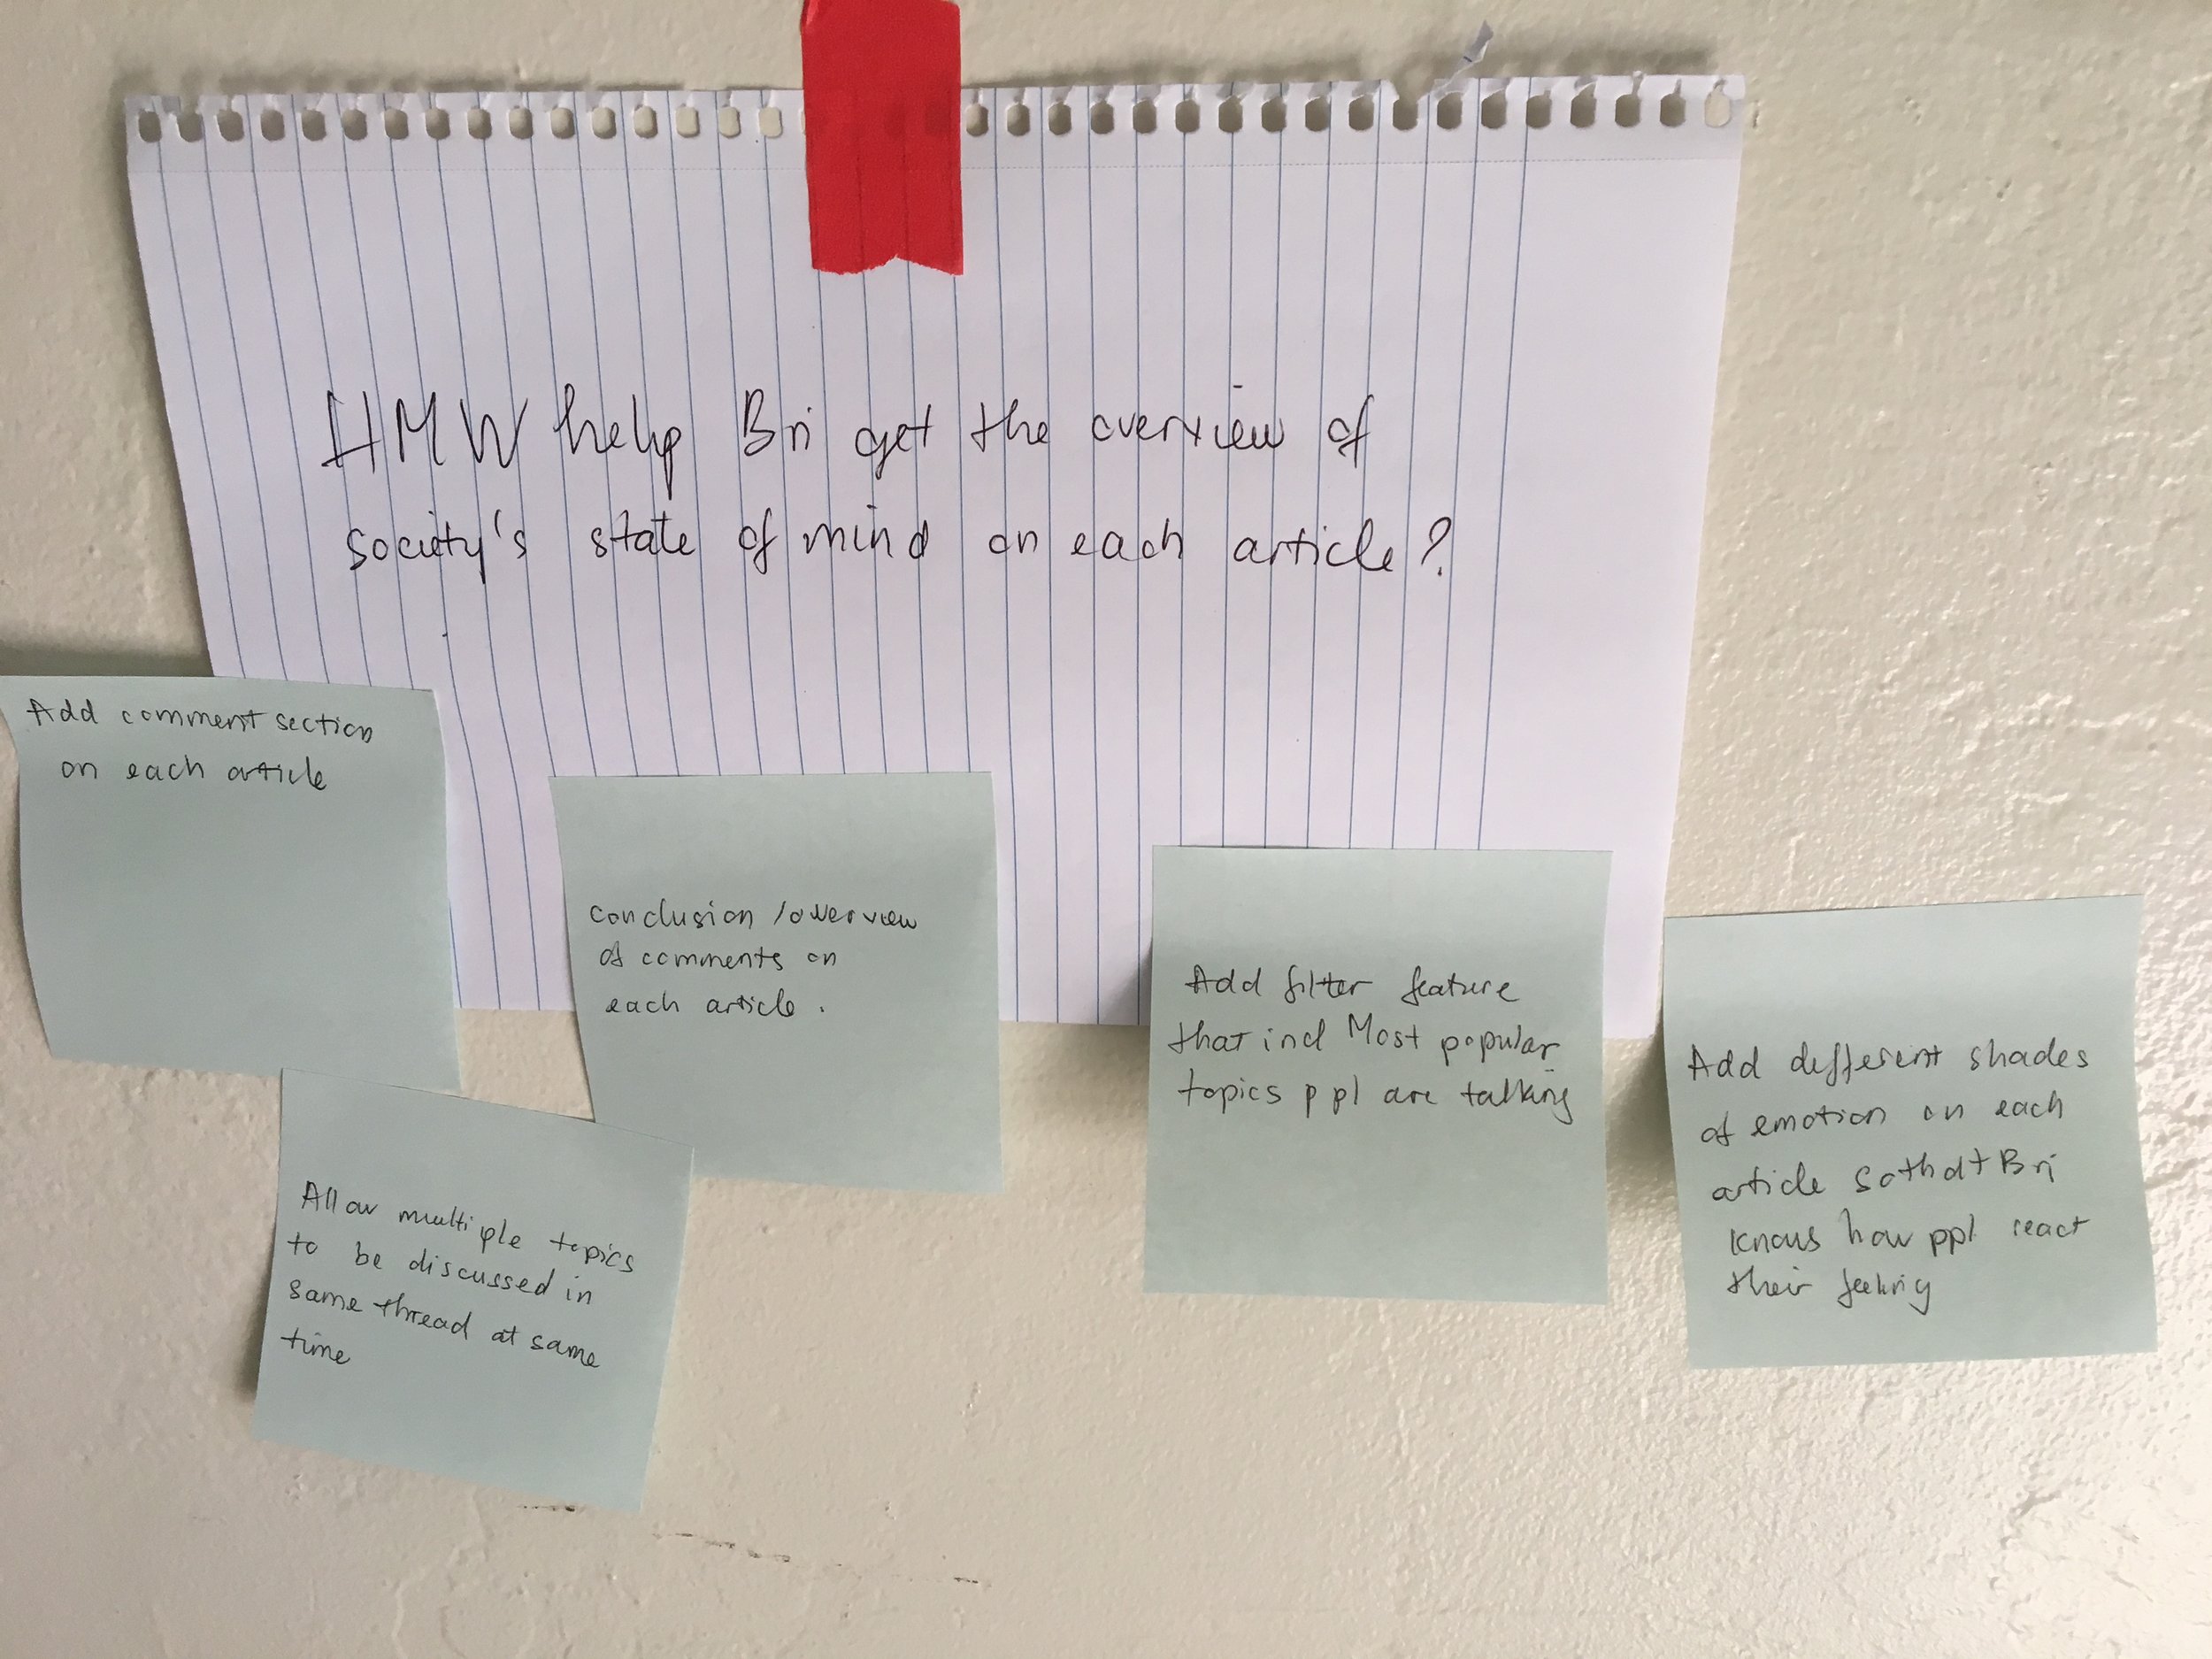 HMW help Bri get the overview of
society's state of mind on each article?
Add comment section
on each article
conclusion / overview
of comments on
each article.
Allow multiple topics
to be discussed in
same thread at same
time
Add filter feature
that incl Most popular
topics ppl are talking
Add different shades
of emotion on each
article so that Bri
knows how ppl react
their feeling